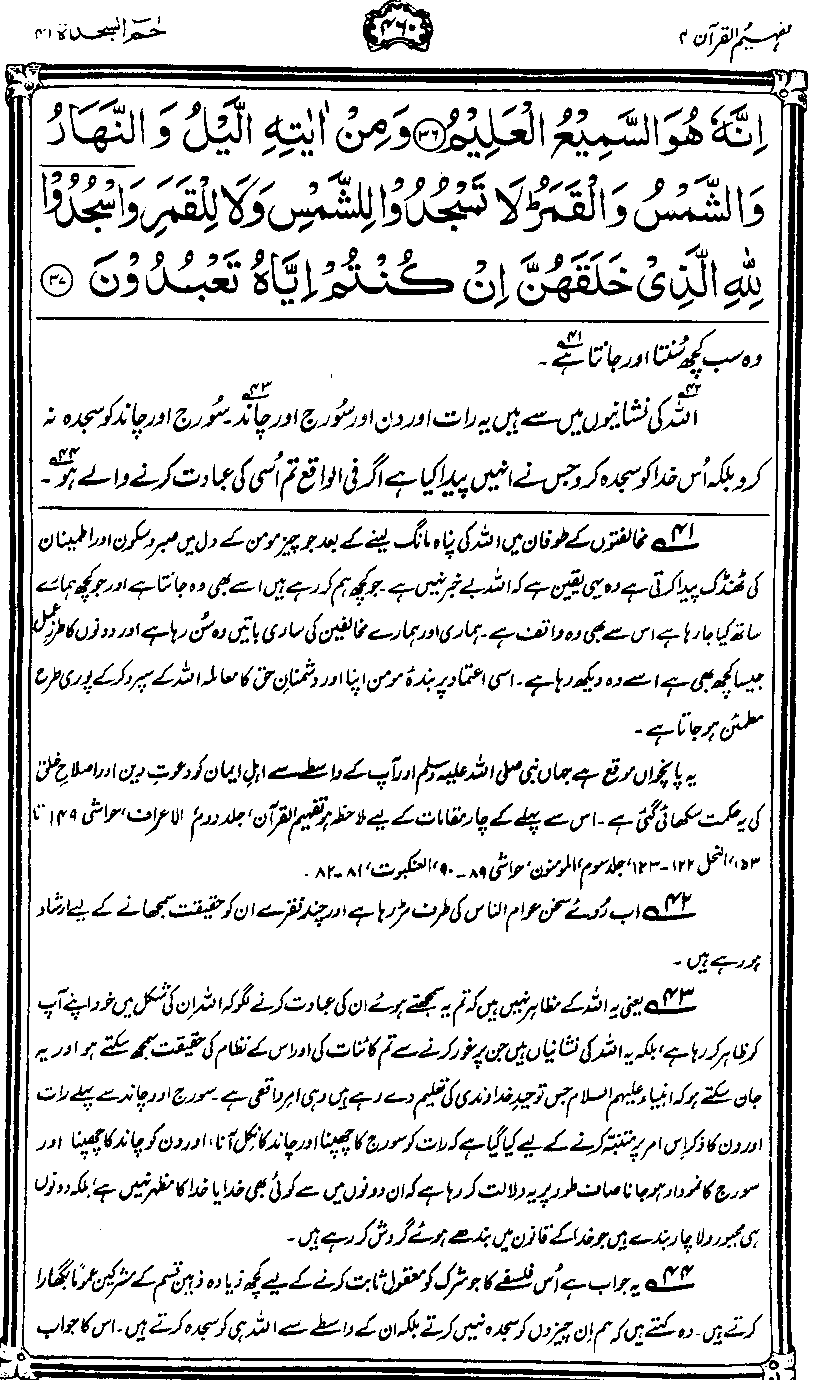 تفہیم القرآن ۴
۴۶۰
حٰمٓ السجدۃ ۴۱
اِنَّهٗ هُوَ السَّمِيْعُ الْعَلِيْمُ ﴿۳۶﴾ وَمِنْ اٰيٰتِهِ الَّيْلُ وَالنَّهَارُ
وَالشَّمْسُ وَالْقَمَرُ ؕ لَا تَسْجُدُوْا لِلشَّمْسِ وَلَا لِلْقَمَرِ وَاسْجُدُوْا
لِلّٰهِ الَّذِيْ خَلَقَهُنَّ اِنْ كُنْتُمْ اِيَّاهُ تَعْبُدُوْنَ ﴿۳۷﴾
وہ سب کچھ سُنتا اور جانتا ہے۴۱۔
اللہ۴۲ کی نشانیوں میں سے ہیں یہ رات اور دن اور سُورج اور چاند۴۳۔ سُورج اور چاند کو سجدہ نہ
کرو بلکہ اُس خدا کو سجدہ کرو جس نے انہیں پیدا کیا ہے اگر فی الواقع تم اُسی کی عبادت کرنے والے ہو۴۴۔
۴۱ مخالفتوں کے طوفان میں اللہ کی پناہ مانگ لینے کے بعد جو چیز مومن کے دل میں صبر و سکون اور اطمینان
کی ٹھنڈک پیدا کرتی ہے وہ یہی یقین ہے کہ اللہ بے خبر نہیں ہے۔ جو کچھ ہم کر رہے ہیں اسے بھی وہ جانتا ہے اور جو کچھ ہمارے
ساتھ کیا جا رہا ہے اس سے بھی وہ واقف ہے۔ ہماری اور ہمارے مخالفین کی ساری باتیں وہ سُن رہا ہے اور دونوں کا طرزِ عمل
جیسا کچھ بھی ہے اسے وہ دیکھ رہا ہے۔ اسی اعتماد پر بندۂ مومن اپنا اور دشمنانِ حق کا معاملہ اللہ کے سپرد کر کے پوری طرح
مطمئن ہو جاتا ہے۔
یہ پانچواں موقع ہے جہاں نبی صلی اللہ علیہ وسلم اور آپ کے واسطے سے اہلِ ایمان کو دعوتِ دین اور اصلاحِ خلق
کی یہ حکمت سکھائی گئی ہے۔ اس سے پہلے کے چار مقامات کے لیے ملاحظہ ہو تفہیم القرآن، جلد دوم، الاعراف، حواشی ۱۴۹ تا
۱۵۳، النحل ۱۲۲-۱۲۳، جلد سوم، المومنون، حواشی ۸۹-۹۰، العنکبوت، ۸۱-۸۲۔
۴۲ اب رُوئے سخن عوام الناس کی طرف مڑ رہا ہے اور چند فقرے ان کو حقیقت سمجھانے کے لیے ارشاد
ہو رہے ہیں۔
۴۳ یعنی یہ اللہ کے مظاہر نہیں ہیں کہ تم یہ سمجھتے ہوئے ان کی عبادت کرنے لگو کہ اللہ ان کی شکل میں خود اپنے آپ
کو ظاہر کر رہا ہے، بلکہ یہ اللہ کی نشانیاں ہیں جن پر غور کرنے سے تم کائنات کی اور اس کے نظام کی حقیقت سمجھ سکتے ہو اور یہ
جان سکتے ہو کہ انبیاء علیہم السلام جس توحیدِ خداوندی کی تعلیم دے رہے ہیں وہی امرِ واقعی ہے۔ سورج اور چاند سے پہلے رات
اور دن کا ذکر اِس امر پر متنبہ کرنے کے لیے کیا گیا ہے کہ رات کو سورج کا چھپنا اور چاند کا نکل آنا، اور دن کو چاند کا چھپنا اور
سورج کا نمودار ہو جانا صاف طور پر یہ دلالت کر رہا ہے کہ ان دونوں میں سے کوئی بھی خدا یا خدا کا مظہر نہیں ہے، بلکہ دونوں
ہی مجبور و لاچار بندے ہیں جو خدا کے قانون میں بندھے ہوئے گردش کر رہے ہیں۔
۴۴ یہ جواب ہے اُس فلسفے کا جو شرک کو معقول ثابت کرنے کے لیے کچھ زیادہ ذہین قسم کے مشرکین عموماً بگھارا
کرتے ہیں۔ وہ کہتے ہیں کہ ہم اِن چیزوں کو سجدہ نہیں کرتے بلکہ ان کے واسطے سے اللہ ہی کو سجدہ کرتے ہیں۔ اس کا جواب